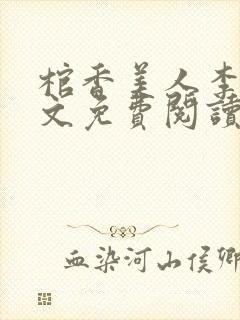 棺香美人李
文免費閱讀
血染河山侯卿